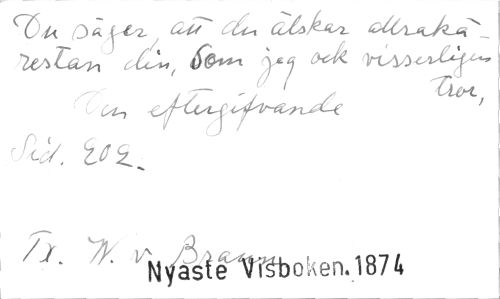 Du säger, att du älskar allrakä-
restan din, Som jag ock visserligen
tror,
Den eftergifvande
Sid. 202.
Tx. W. v. Braun
Nyaste Visboken. 1874